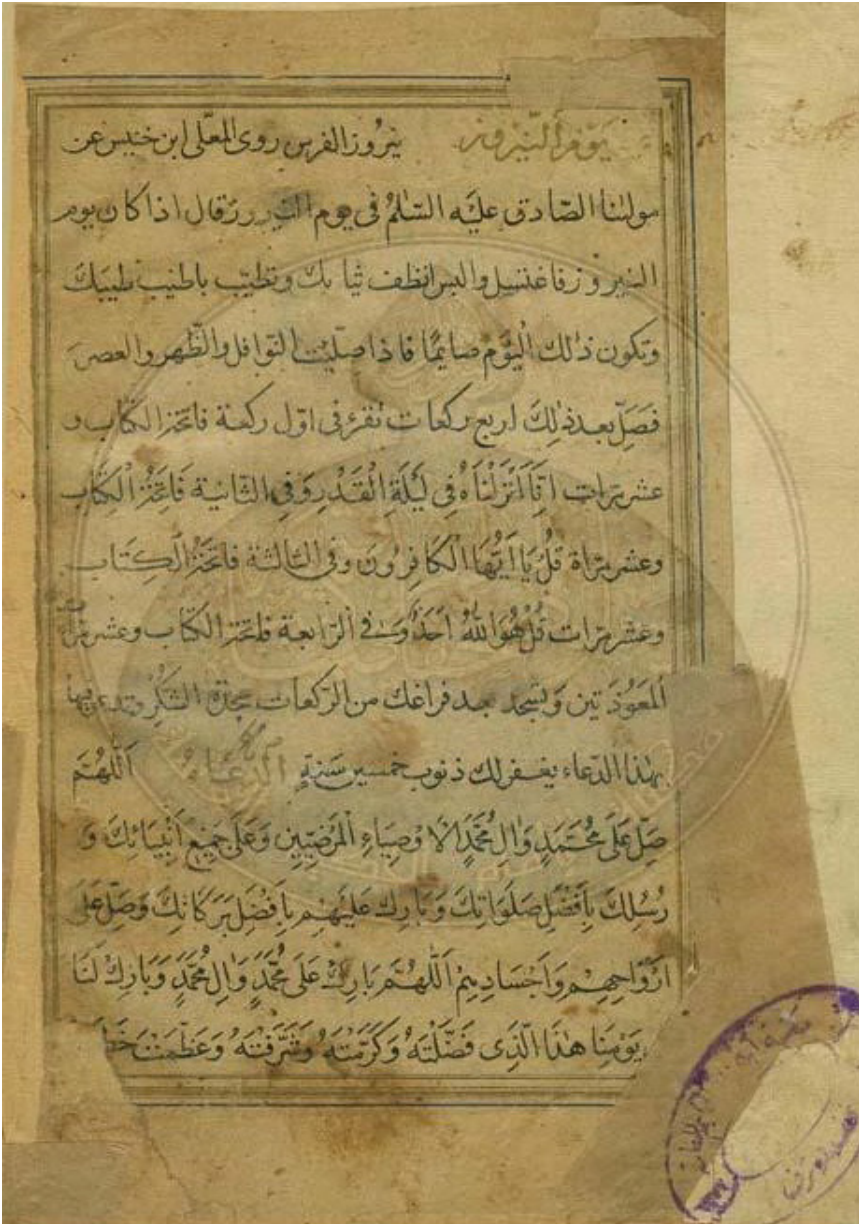 يَوْمُ النَّيْرُوزِ نيروز الفرس روى المعلّى ابن خنيس عن
مولٰىنا الصّادق عليْه السّلٰمُ فى يوم النيروز قال اذا كان يوم
النيروز فاغتسل والبس انظف ثيابك وتطيّب باطيب طيبك
وتكون ذٰلك اليْوم صايمًا فاذا صلّيت النوافل والظّهر والعصر
فصَلِّ بعد ذٰلِكَ اربع ركعات تقرء فى اوّل ركعة فاتحة الكتاب و
عشر مرّات اِنَّا اَنْزَلْنَاهُ فِى لَيْلَةِ الْقَدْرِ وَفِى الثّانية فَاتِحَةُ الْكِتَاب
وعشر مرّاة قُلْ يَا اَيُّهَا الْكَافِرُونَ وفى الثالثة فاتحَةُ الْكِتَاب
وعشر مرّات قُلْ هُوَ اللّٰهُ اَحَدٌ وَفى الرّابعة فاتحة الكتاب وعشر مرّات
اَلمعَوُّذَتين وَتسجد بعد فراغك من الرّكعات سجدة الشّكر وتدعو فيها
بهٰذا الدّعاء يغفر لك ذنوب خمسين سَنةٍ اَلدُّعَاءُ اَللّٰهُمَّ
صَلِّ عَلٰى مُحَمَّدٍ وَاٰلِ مُحَمَّدٍ اَلْاَوْصِيَاءِ الْمَرْضِيّيِنَ وَعَلٰى جَمِيْعِ اَنْبِيَائِكَ وَ
رُسُلِكَ بِاَفْضَلِ صَلَوَاتِكَ وَبَارِكْ عَلَيْهِمْ بِاَفْضَلِ بَرَكَاتِكَ وَصَلِّ عَلٰى
اَرْوَاحِهِمْ وَاَجْسَادِهِمْ اَللّٰهُمَّ بَارِكْ عَلٰى مُحَمَّدٍ وَاٰلِ مُحَمَّدٍ وَبَارِكْ لَنَا
يَوْمِنَا هٰذَا الَّذِى فَضَّلْتَهُ وَكَرَّمْتَهُ وَشَرَّفْتَهُ وَعَظَّمْتَ